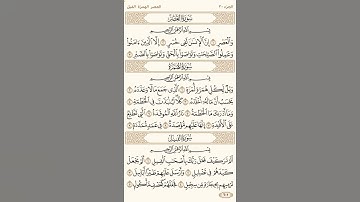 الجزء ٣٠ العصر الهمزة الفيل
سُورَةُ العَصْرِ
بِسْمِ اللَّهِ الرَّحْمَٰنِ الرَّحِيمِ
وَالْعَصْرِ ١ إِنَّ الْإِنسَانَ لَفِي خُسْرٍ ٢ إِلَّا الَّذِينَ ءَامَنُوا
وَعَمِلُوا الصَّالِحَاتِ وَتَوَاصَوْا بِالْحَقِّ وَتَوَاصَوْا بِالصَّبْرِ ٣
سُورَةُ الهُمَزَةِ
بِسْمِ اللَّهِ الرَّحْمَٰنِ الرَّحِيمِ
وَيْلٌ لِّكُلِّ هُمَزَةٍ لُّمَزَةٍ ١ الَّذِي جَمَعَ مَالًا وَعَدَّدَهُ ٢
يَحْسَبُ أَنَّ مَالَهُ أَخْلَدَهُ ٣ كَلَّا لَيُنبَذَنَّ فِي الْحُطَمَةِ ٤
وَمَا أَدْرَاكَ مَا الْحُطَمَةُ ٥ نَارُ اللَّهِ الْمُوقَدَةُ ٦ الَّتِي تَطَّلِعُ
عَلَى الْأَفْئِدَةِ ٧ إِنَّهَا عَلَيْهِم مُّؤْصَدَةٌ ٨ فِي عَمَدٍ مُّمَدَّدَةٍ ٩
سُورَةُ الفِيلِ
بِسْمِ اللَّهِ الرَّحْمَٰنِ الرَّحِيمِ
أَلَمْ تَرَ كَيْفَ فَعَلَ رَبُّكَ بِأَصْحَابِ الْفِيلِ ١ أَلَمْ يَجْعَلْ
كَيْدَهُمْ فِي تَضْلِيلٍ ٢ وَأَرْسَلَ عَلَيْهِمْ طَيْرًا أَبَابِيلَ ٣
تَرْمِيهِم بِحِجَارَةٍ مِّن سِجِّيلٍ ٤ فَجَعَلَهُمْ كَعَصْفٍ مَّأْكُولٍ ٥